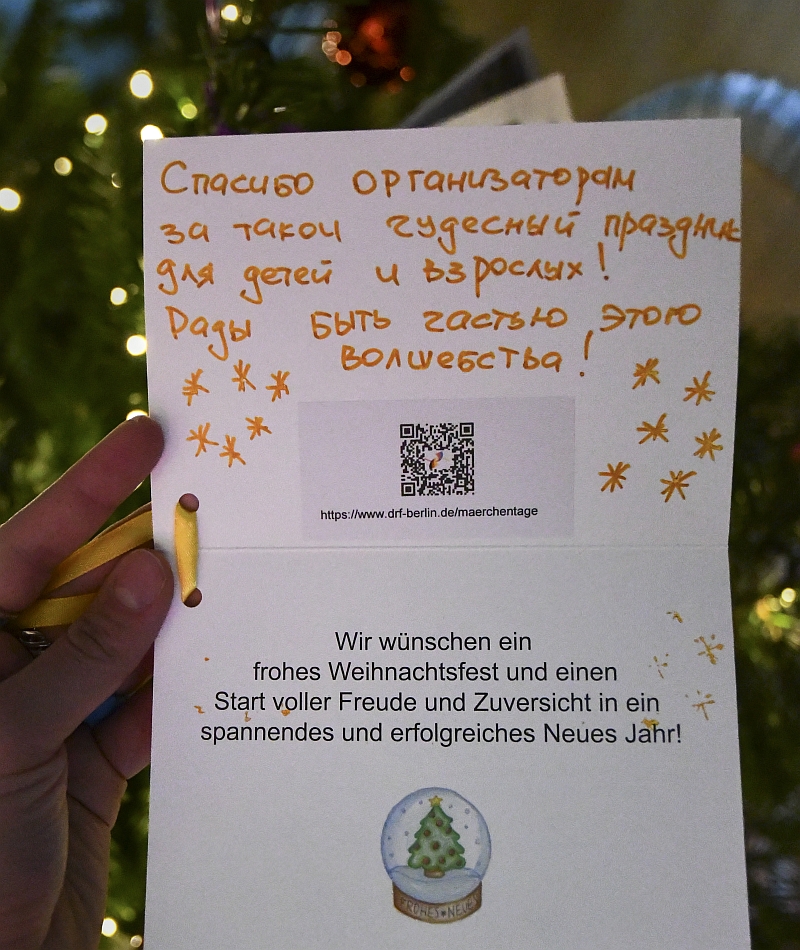 Спасибо организаторам
за такой чудесный праздник
для детей и взрослых!
Рады быть частью этого
волшебства!
https://www.drf-berlin.de/maerchentage
Wir wünschen ein
frohes Weihnachtsfest und einen
Start voller Freude und Zuversicht in ein
spannendes und erfolgreiches Neues Jahr!
FROHES NEUES